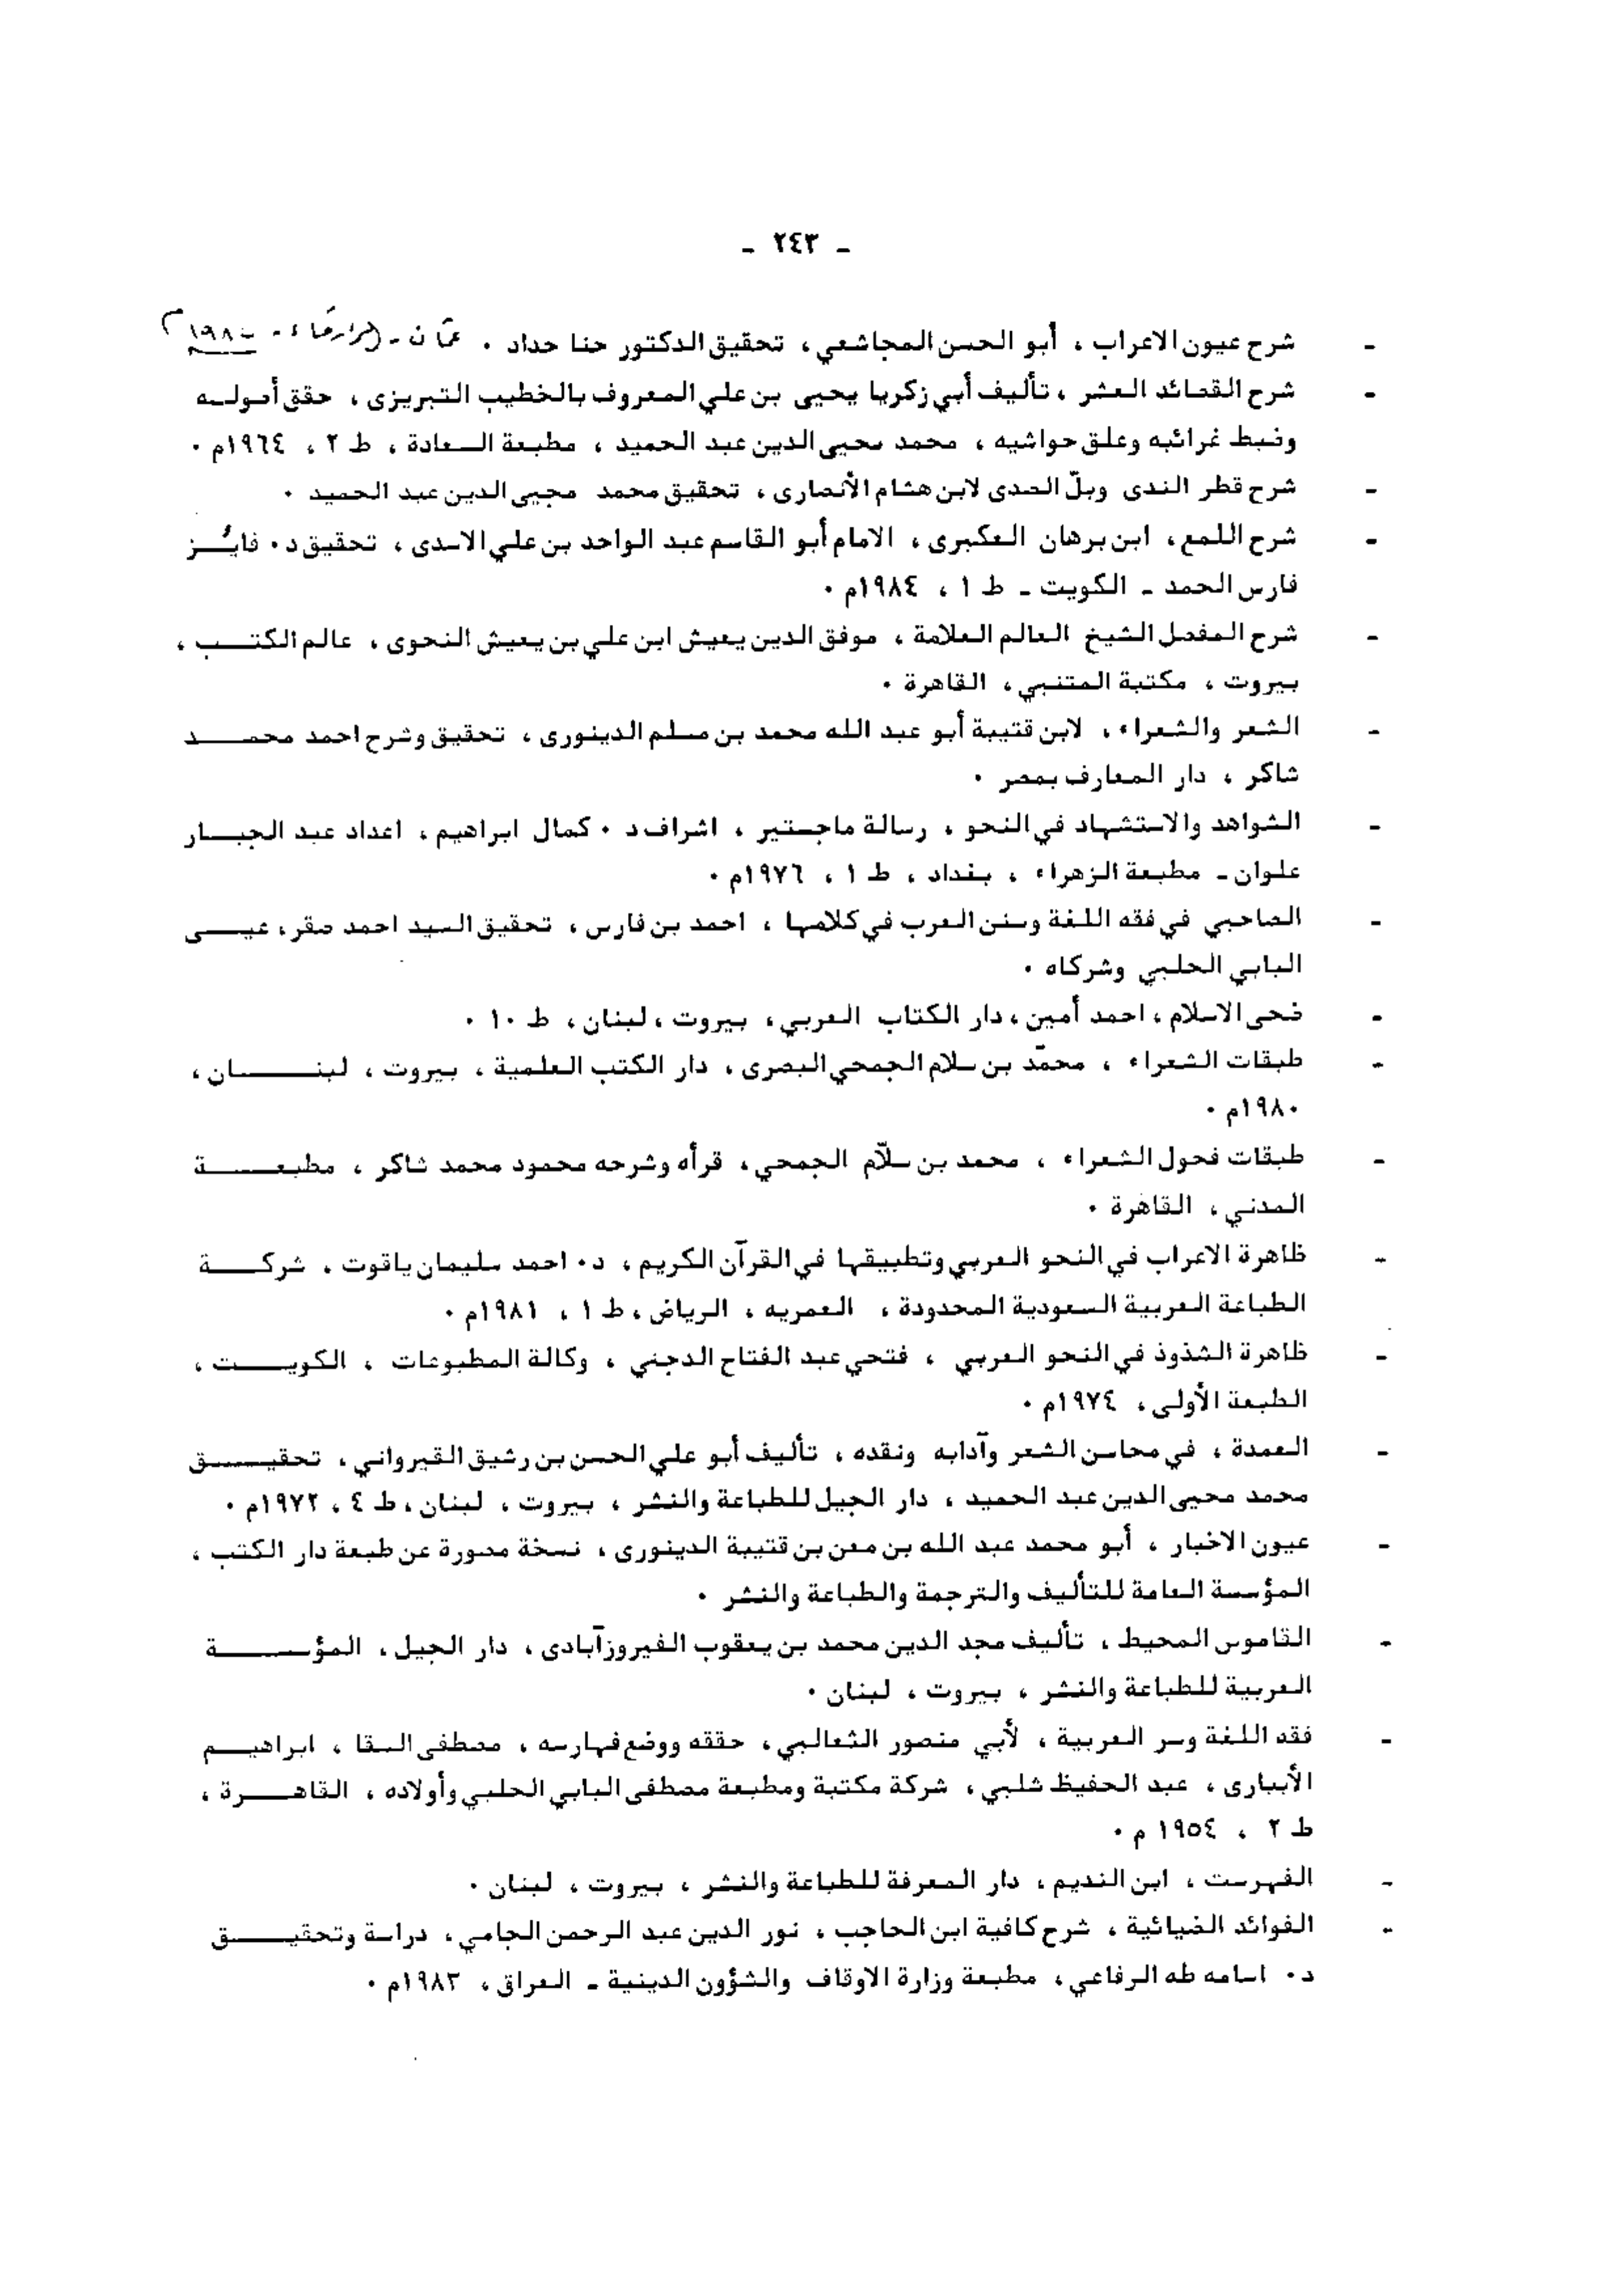 - ٢٤٣ -
- شرح عيون الاعراب ، أبو الحسن المجاشعي ، تحقيق الدكتور حنا حداد . عمّان -
- شرح القصائد العشر ، تأليف أبي زكريا يحيى بن علي المعروف بالخطيب التبريزى ، حقق أصولــه
وضبط غرائبه وعلق حواشيه ، محمد محيى الدين عبد الحميد ، مطبعة السعادة ، ط ٢ ، ١٩٦٤م .
- شرح قطر الندى وبلّ الصدى لابن هشام الأنصارى ، تحقيق محمد محيى الدين عبد الحميد .
- شرح اللمع ، ابن برهان العكبرى ، الامام أبو القاسم عبد الواحد بن علي الاسدى ، تحقيق د . فائــز
فارس الحمد - الكويت - ط ١ ، ١٩٨٤م .
- شرح المفصل الشيخ العالم العلامة ، موفق الدين يعيش ابن علي بن يعيش النحوى ، عالم الكتــب ،
بيروت ، مكتبة المتنبي ، القاهرة .
- الشعر والشعراء ، لابن قتيبة أبو عبد الله محمد بن مسلم الدينورى ، تحقيق وشرح احمد محمــد
شاكر ، دار المعارف بمصر .
- الشواهد والاستشهاد في النحو ، رسالة ماجستير ، اشراف د . كمال ابراهيم ، اعداد عبد الجبــار
علوان - مطبعة الزهراء ، بغداد ، ط ١ ، ١٩٧٦م .
- الصاحبي في فقه اللغة وسنن العرب في كلامها ، احمد بن فارس ، تحقيق السيد احمد صقر ، عيســى
البابي الحلبي وشركاه .
- ضحى الاسلام ، احمد أمين ، دار الكتاب العربي ، بيروت ، لبنان ، ط ١٠ .
- طبقات الشعراء ، محمّد بن سلام الجمحي البصرى ، دار الكتب العلمية ، بيروت ، لبنــان ،
١٩٨٠م .
- طبقات فحول الشعراء ، محمد بن سلاّم الجمحي ، قرأه وشرحه محمود محمد شاكر ، مطبعــة
المدني ، القاهرة .
- ظاهرة الاعراب في النحو العربي وتطبيقها في القرآن الكريم ، د . احمد سليمان ياقوت ، شركــة
الطباعة العربية السعودية المحدودة ، العمريه ، الرياض ، ط ١ ، ١٩٨١م .
- ظاهرة الشذوذ في النحو العربي ، فتحي عبد الفتاح الدجني ، وكالة المطبوعات ، الكويــت ،
الطبعة الأولى ، ١٩٧٤م .
- العمدة ، في محاسن الشعر وآدابه ونقده ، تأليف أبو علي الحسن بن رشيق القيرواني ، تحقيــق
محمد محيى الدين عبد الحميد ، دار الجيل للطباعة والنشر ، بيروت ، لبنان ، ط ٤ ، ١٩٧٢م .
- عيون الاخبار ، أبو محمد عبد الله بن معن بن قتيبة الدينورى ، نسخة مصورة عن طبعة دار الكتب ،
المؤسسة العامة للتأليف والترجمة والطباعة والنشر .
- القاموس المحيط ، تأليف مجد الدين محمد بن يعقوب الفيروزآبادى ، دار الجيل ، المؤســة
العربية للطباعة والنشر ، بيروت ، لبنان .
- فقه اللغة وسر العربية ، لأبي منصور الثعالبي ، حققه ووضع فهارسه ، مصطفى السقا ، ابراهيــم
الأبيارى ، عبد الحفيظ شلبي ، شركة مكتبة ومطبعة مصطفى البابي الحلبي وأولاده ، القاهــرة ،
ط ٢ ، ١٩٥٤ م .
- الفهرست ، ابن النديم ، دار المعرفة للطباعة والنشر ، بيروت ، لبنان .
- الفوائد الضيائية ، شرح كافية ابن الحاجب ، نور الدين عبد الرحمن الجامي ، دراسة وتحقيــق
د . اسامه طه الرفاعي ، مطبعة وزارة الاوقاف والشؤون الدينية - العراق ، ١٩٨٣م .